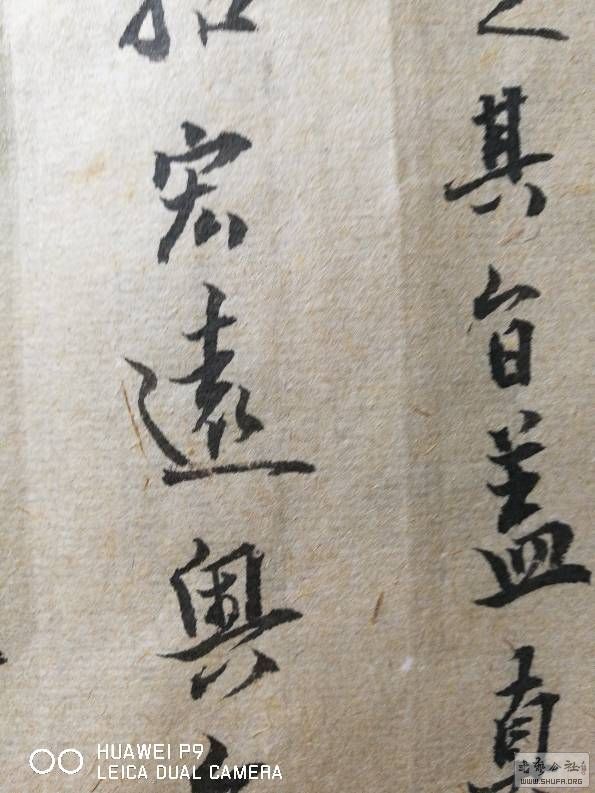 其旨盖真
括宏遠奥
HUAWEI P9
LEICA DUAL CAMERA
书法公社
WWW.SHUFA.ORG